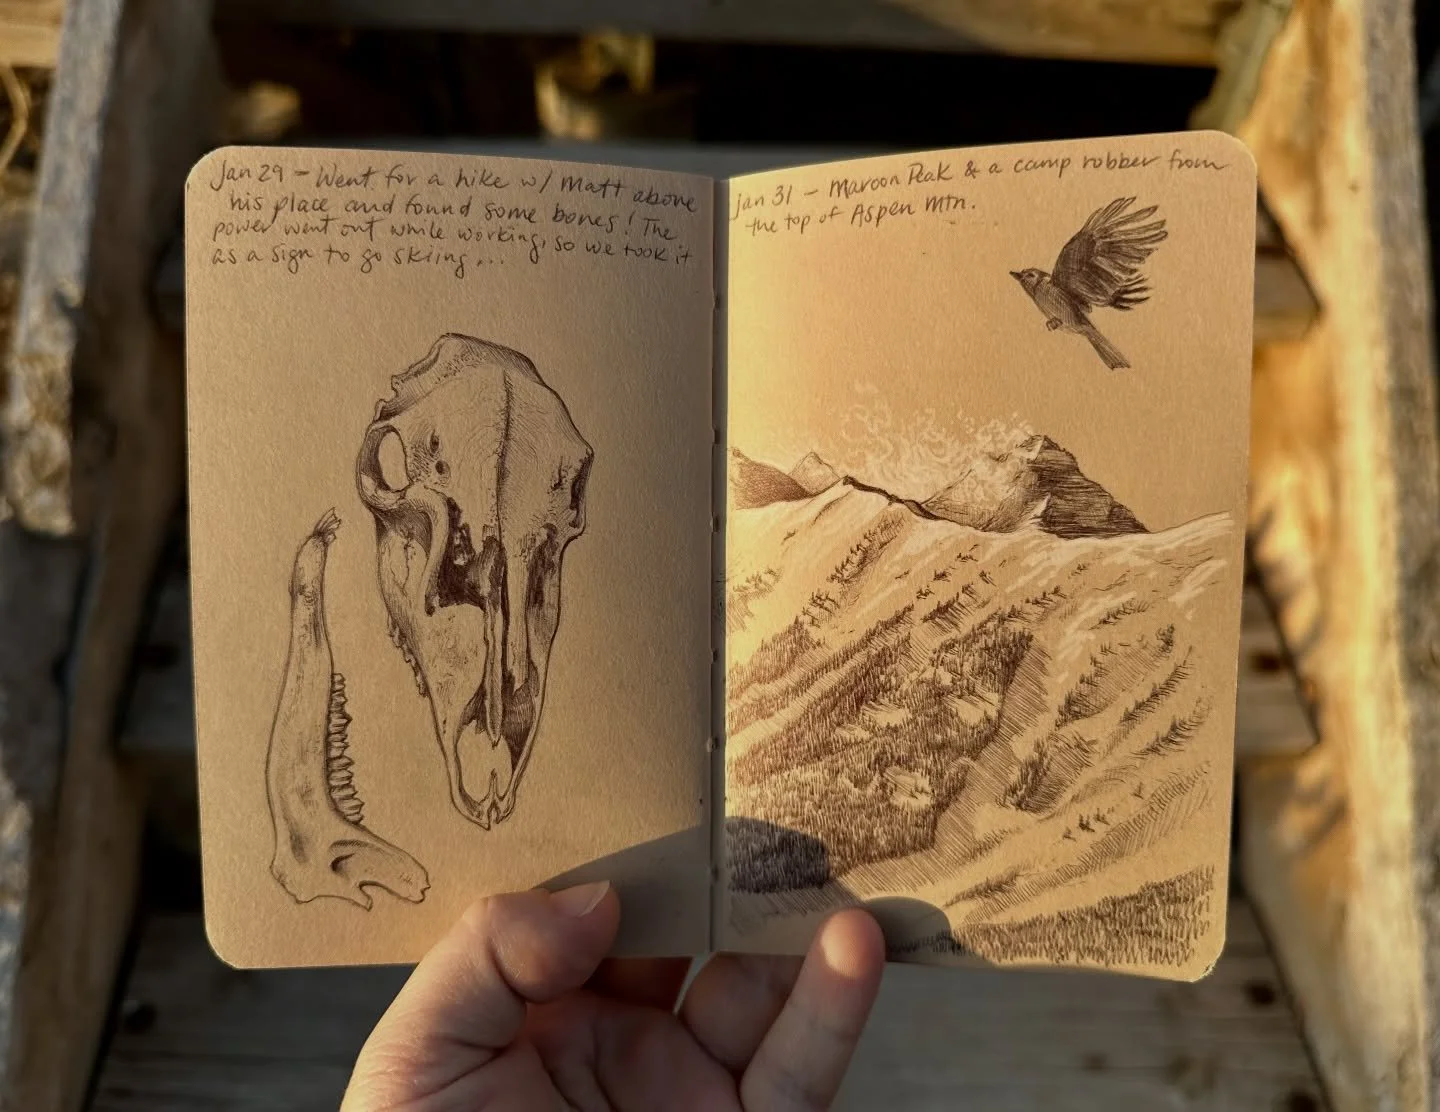 Jan 29 - Went for a hike w/ Matt above
his place and found some bones! The
power went out while working, so we took it
as a sign to go skiing...
Jan 31 - Maroon Peak & a camp robber from
the top of Aspen Mtn.